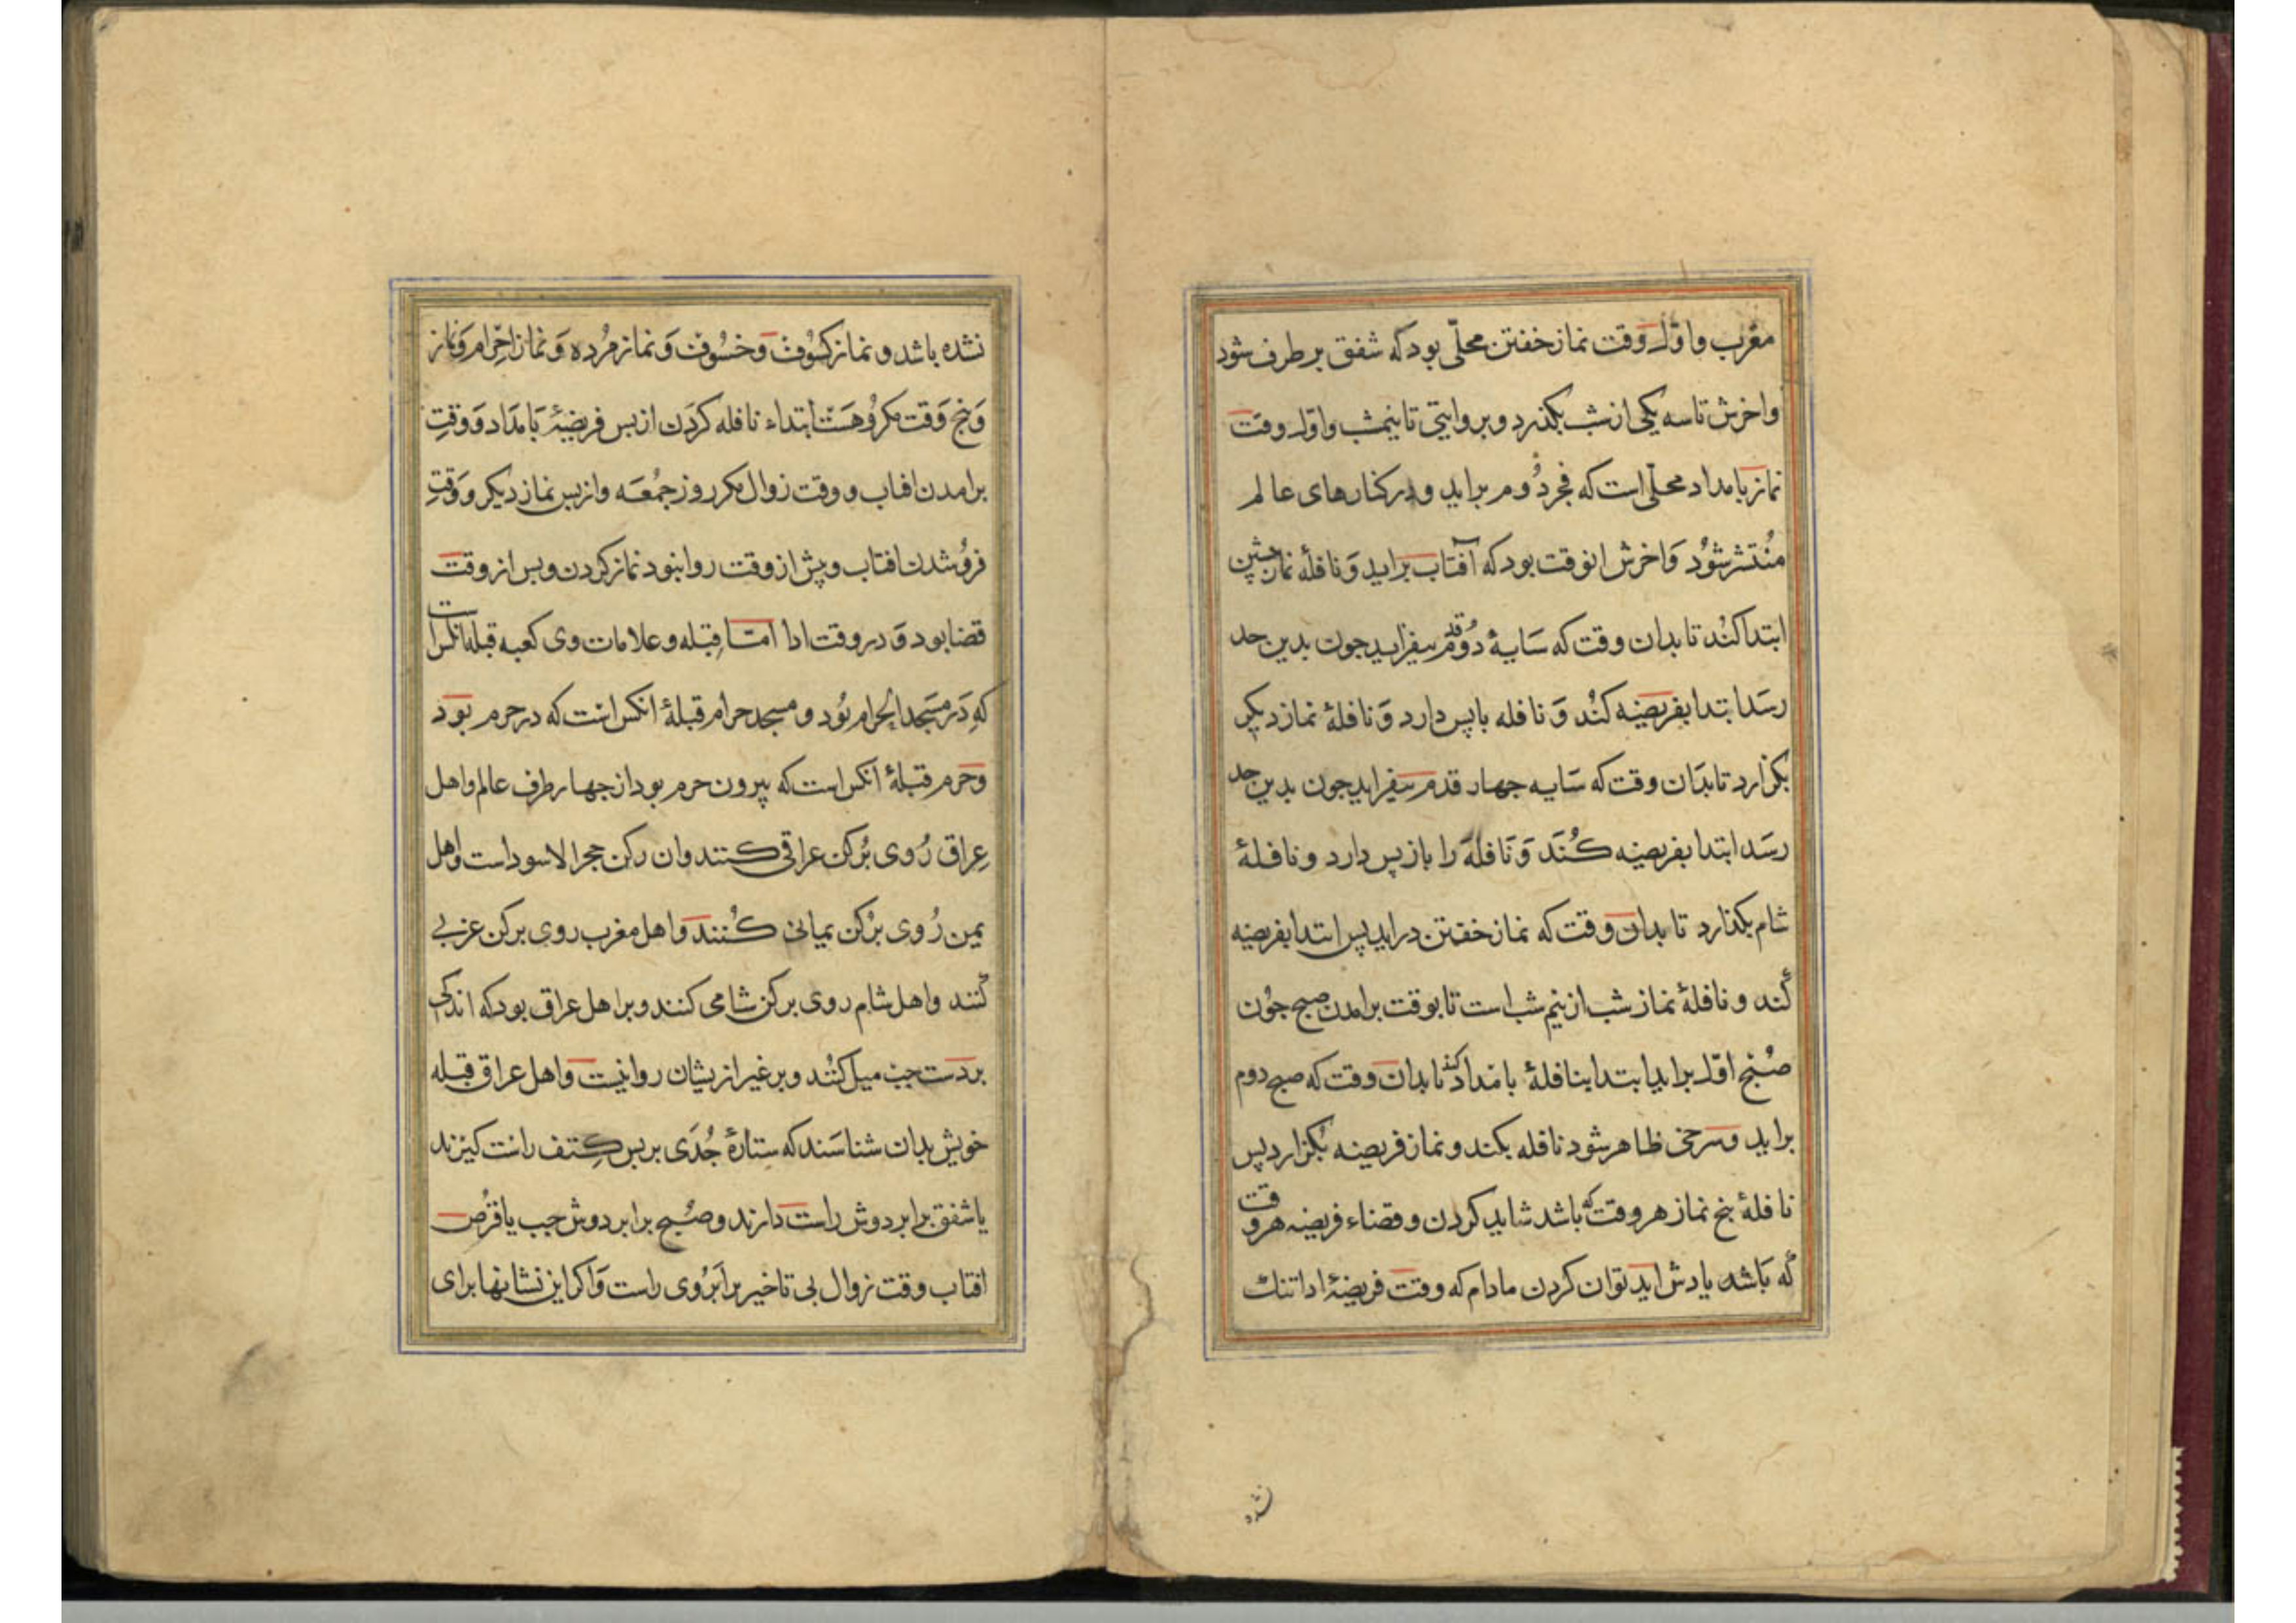 مغرب واوّل وقت نماز خفتن محلّی بود که شفق برطرف شود
واخرش تا سه یکی از شب بکذرد وبروایتی تا نیمشب واوّل وقت
نماز بامداد محلّی است که فجر دُوم براید ودر کنارهای عالم
مُنتشر شوُد وَاخرش انوقت بود که آفتاب براید وَنافلهٔ نماز پشین
ابتدا کنُد تا بدان وقت که سَایهٔ دُو قدم بیفزاید جون بدین حد
رسَد ابتدا بفریضَه کنُد وَنافله باپس دارد وَنافلهٔ نماز دیکر
بکزارد تا بدَان وقت که سَایه جهار قدم بیفزاید جون بدین حد
رسَد ابتدا بفریضه کُنَد وَنَافلهَ را بازپس دارد ونافلهٔ
شام بکذارد تا بدان وقت که نماز خفتن دراید پس ابتدا بفریضه
کُند ونافلهٔ نماز شب از نیم شب است تا بوقت برامدن صبح جوُن
صُبْح اوّل براید ابتدا بنافلهٔ بامداد کند تا بدان وقت که صبح دوم
براید وسرخی ظاهر شود نافله بکند ونماز فریضه بکزارد پس
نافلهٔ پنج نماز هر وقت که باشد شاید کردن وقضاء فریضه هر وقت
که بَاشد یادش اید توان کردن مادام که وقت فریضهٔ ادا تنک
نشده
نشده باشد و نماز کسُوُف وَخسُوف وَنماز مُرده وَنماز احْرام وَنماز
وَپنج وَقت مکرُوهَست ابتداء نافله کردَن از پس فریضهٔ بَامدَاد وَوقتِ
برامدن افتاب ووقت زوال مکر روز جمُعَه واز پس نماز دیکر ووَقتِ
فروُشدن افتاب وپیش از وقت روا نبود نماز کردن وپس از وقت
قضا بود وَدر وقت ادا امّا قِبله وعلامات وی کعبه قبلهٔ انکس است
که دَر مسَجد الحرام بُود ومسجد حرام قبلهٔ انکس است که در حرم بود
وحَرم قبلهٔ آنکس است که بیرون حرم بود از جهار طرف عالم واهل
عِراق رُوی برُکن عراقی کنند وان رکن حجر الاسود است واهل
یمن رُوی برُکن یمانی کُنند واهل مغرب روی برکن غربی
کُنند واهل شام روی برکن شامی کنند وبر اهل عراق بود که اندکی
بردَست جب میل کنُند وبر غیر ازیشان روانیست واهل عراق قبله
خویش بدان شناسَند که ستارهٔ جُدَی بر پس کِتف راست کیرَند
یا شفق برابر دوش راست دارند وصُبح برابر دوش جب یا قُرص
افتاب وقت زوال بی تاخیر برابَر وُی راست وَاکر این نشانها برای